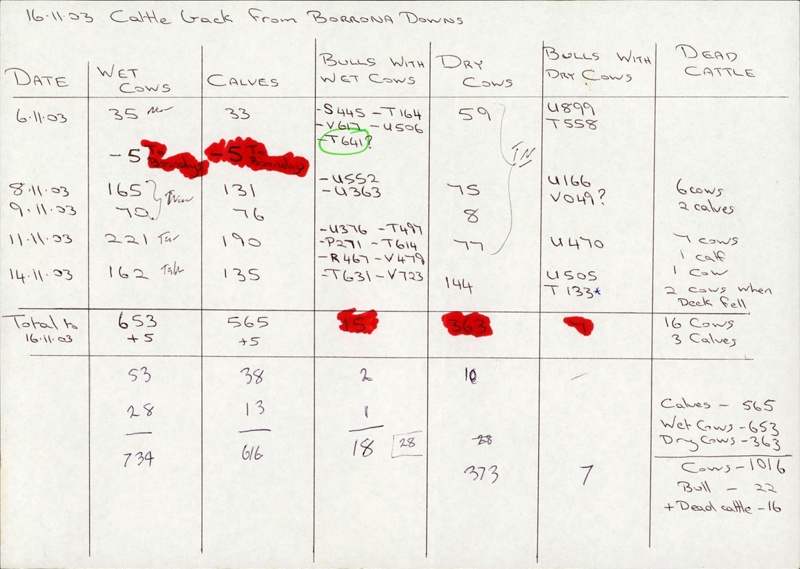 16.11.03 Cattle back from BORRONA DOWNS
DATE WET COWS CALVES BULLS WITH WET COWS DRY COWS BULLS WITH DRY COWS DEAD CATTLE
6.11.03 35 33 -S445 -T164 59 U899
-V617 -U506 T558
-T641?
-5 To Boundary -5 To Boundary IN
8.11.03 165 131 -U552 75 U166 6 cows
-U363 V049? 2 calves
9.11.03 70 76 8
11.11.03 221 190 -U376 -T497 77 U470 7 cows
-P271 -T614 1 calf
-R467 -V479
14.11.03 162 135 -T631 -V723 144 U505 1 cow
T133* 2 cows when Deck fell
Total to 653 565 15 363 7 16 Cows
16.11.03 +5 +5 3 Calves
53 38 2 10 -
28 13 1 Calves - 565
28 28 Wet Cows - 653
734 616 18 Dry Cows - 363
373 7 Cows - 1016
Bull - 22
+ Dead cattle - 16